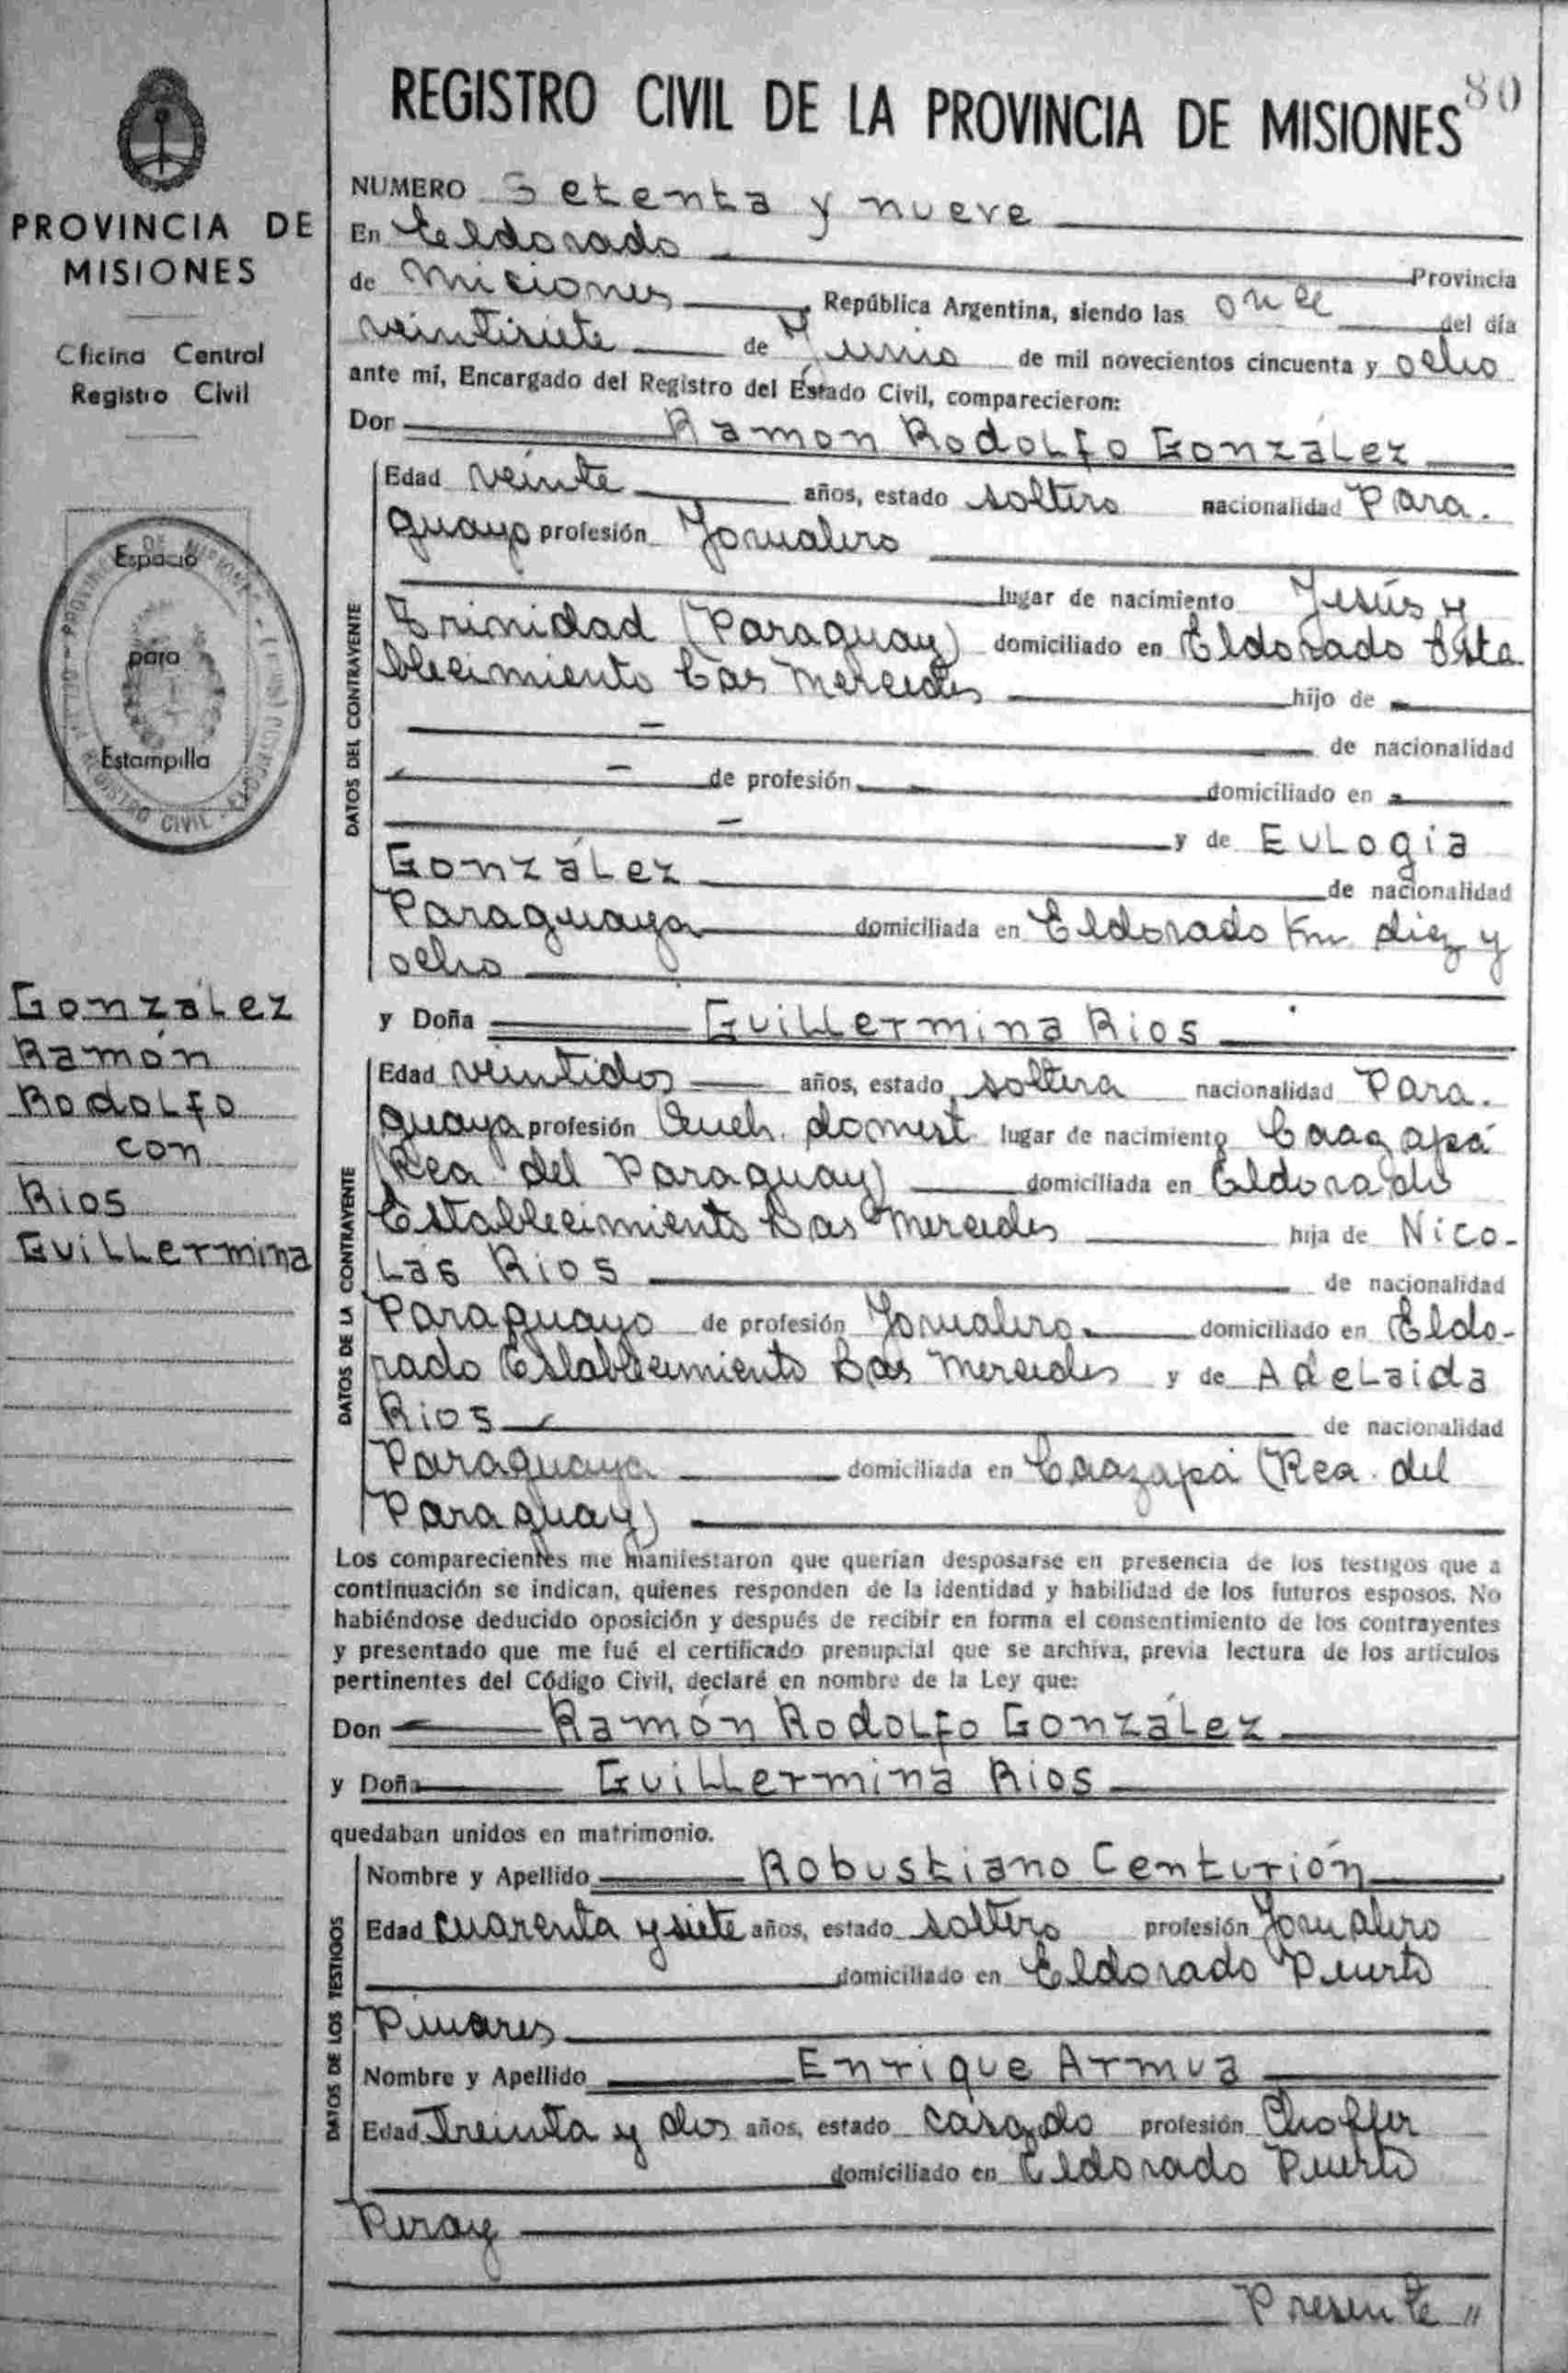 80
REGISTRO CIVIL DE LA PROVINCIA DE MISIONES
PROVINCIA DE
MISIONES
Oficina Central
Registro Civil
Espacio
para
Estampilla
González
Ramón
Rodolfo
con
Rios
Guillermina
NUMERO Setenta y nueve
En Eldorado Provincia
de Misiones, República Argentina, siendo las once del día
veintisiete de Junio de mil novecientos cincuenta y ocho
ante mí, Encargado del Registro del Estado Civil, comparecieron:
Don Ramon Rodolfo González
DATOS DEL CONTRAYENTE
Edad veinte años, estado soltero nacionalidad Para.
guayo profesión Jornalero
lugar de nacimiento Jesús y
Trinidad (Paraguay) domiciliado en Eldorado Esta.
blecimiento Las Mercedes hijo de
de nacionalidad
de profesión domiciliado en
y de Eulogia
González de nacionalidad
Paraguaya domiciliada en Eldorado Km diez y
ocho
y Doña Guillermina Rios
DATOS DE LA CONTRAYENTE
Edad veintidos años, estado soltera nacionalidad Para.
guaya profesión Queh. domest. lugar de nacimiento Caazapá
(Rea del Paraguay) domiciliada en Eldorado
Establecimiento Las Mercedes hija de Nico-
las Rios de nacionalidad
Paraguayo de profesión Jornalero domiciliado en Eldo-
rado Establecimiento Las Mercedes y de Adelaida
Rios de nacionalidad
Paraguaya domiciliada en Caazapá (Rea. del
Paraguay)
Los comparecientes me manifestaron que querían desposarse en presencia de los testigos que a
continuación se indican, quienes responden de la identidad y habilidad de los futuros esposos. No
habiéndose deducido oposición y después de recibir en forma el consentimiento de los contrayentes
y presentado que me fué el certificado prenupcial que se archiva, previa lectura de los artículos
pertinentes del Código Civil, declaré en nombre de la Ley que:
Don Ramón Rodolfo González
y Doña Guillermina Rios
quedaban unidos en matrimonio.
DATOS DE LOS TESTIGOS
Nombre y Apellido Robustiano Centurión
Edad cuarenta y siete años, estado soltero profesión Jornalero
domiciliado en Eldorado Puerto
Pinares
Nombre y Apellido Enrique Armua
Edad Treinta y dos años, estado casado profesión Choffer
domiciliado en Eldorado Puerto
Piray
Presente "